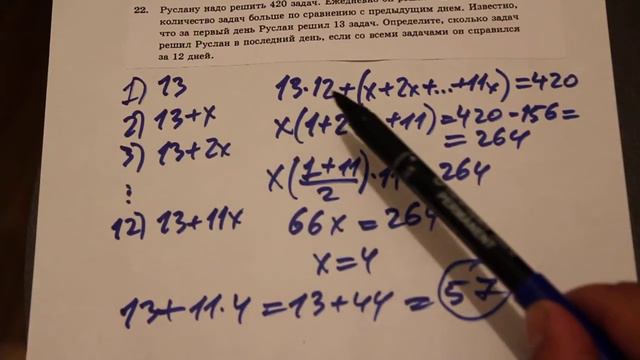 22. Руслану надо решить 420 задач. Ежедневно он
количество задач больше по сравнению с предыдущим днем. Известно,
что за первый день Руслан решил 13 задач. Определите, сколько задач
решил Руслан в последний день, если со всеми задачами он справился
за 12 дней.
1) 13
2) 13+x
3) 13+2x
12) 13+11x
13·12+(x+2x+...+11x)=420
x(1+2 +11)=420-156=
=264
x(1+11/2)·11 264
66x=264
x=4
13+11·4=13+44=57
PERMANENT